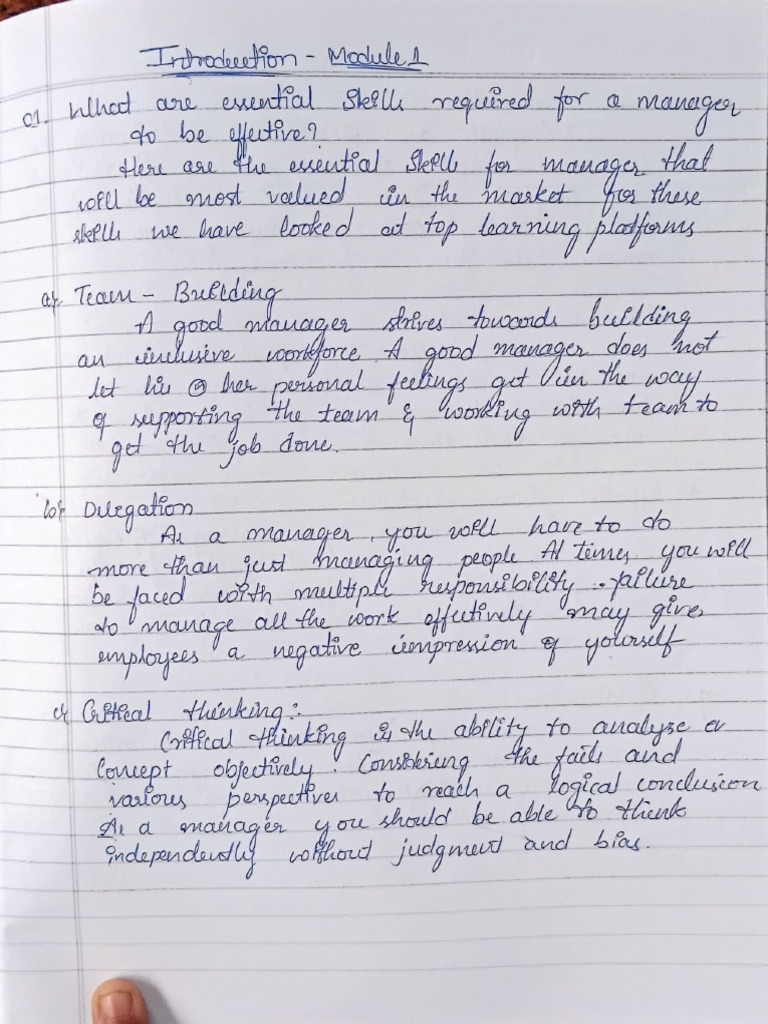 Introduction - Module 1
Q1. What are essential skills required for a manager
to be effective?
Here are the essential skills for manager that
will be most valued in the market for these
skills we have looked at top learning platforms
a). Team - Building
A good manager strives towards building
an inclusive workforce. A good manager does not
let his or her personal feelings get in the way
of supporting the team & working with team to
get the job done.
b). Delegation
As a manager, you will have to do
more than just managing people At times you will
be faced with multiple responsibility.. failure
to manage all the work effectively may give
employees a negative impression of yourself
c). Critical thinking:
Critical thinking is the ability to analyse a
concept objectively. Considering the facts and
various perspectives to reach a logical conclusion
As a manager you should be able to think
independently without judgment and bias.